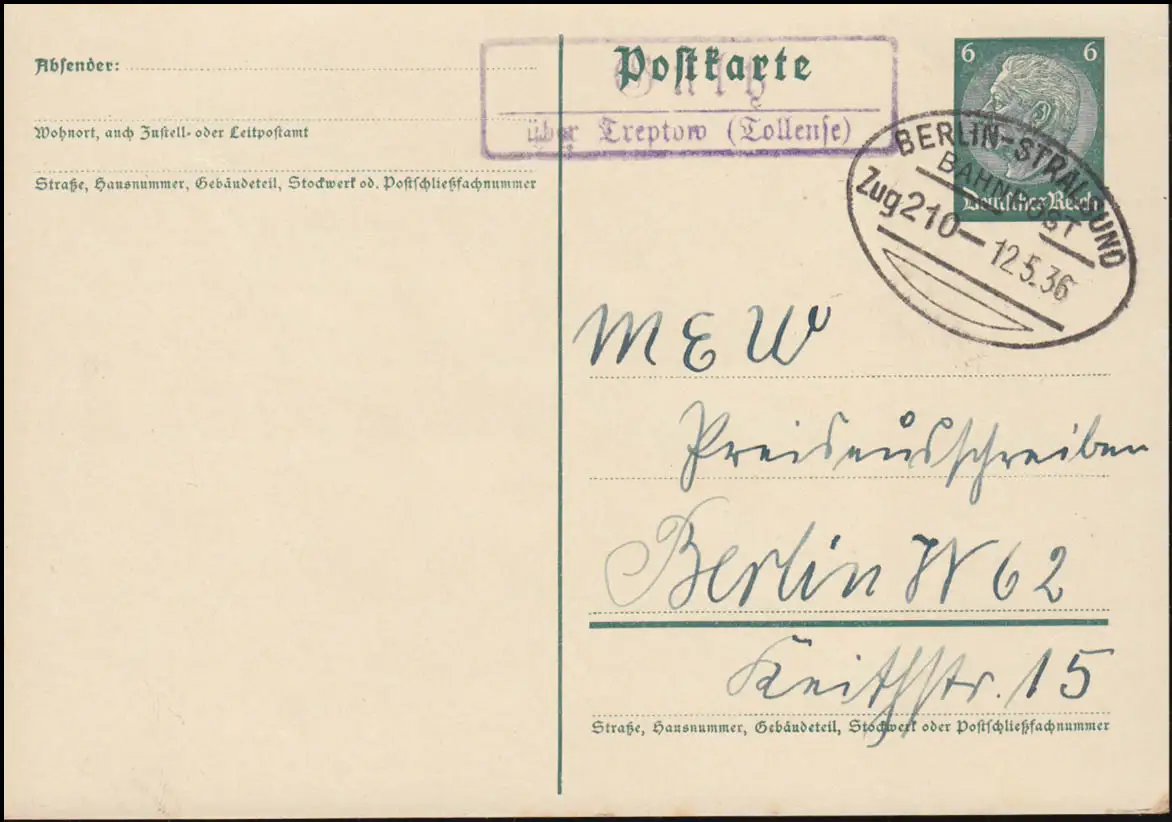 Absender:
Wohnort, auch Zustell- oder Leitpostamt
Straße, Hausnummer, Gebäudeteil, Stockwerk od. Postschließfachnummer
Postkarte
über Treptow (Tollense)
6 6
Deutsches Reich
BERLIN-STRALSUND
BAHNPOST
Zug 210 - 12.5.36
M E W
Preisausschreiben
Berlin W 62
Keithstr. 15
Straße, Hausnummer, Gebäudeteil, Stockwerk oder Postschließfachnummer